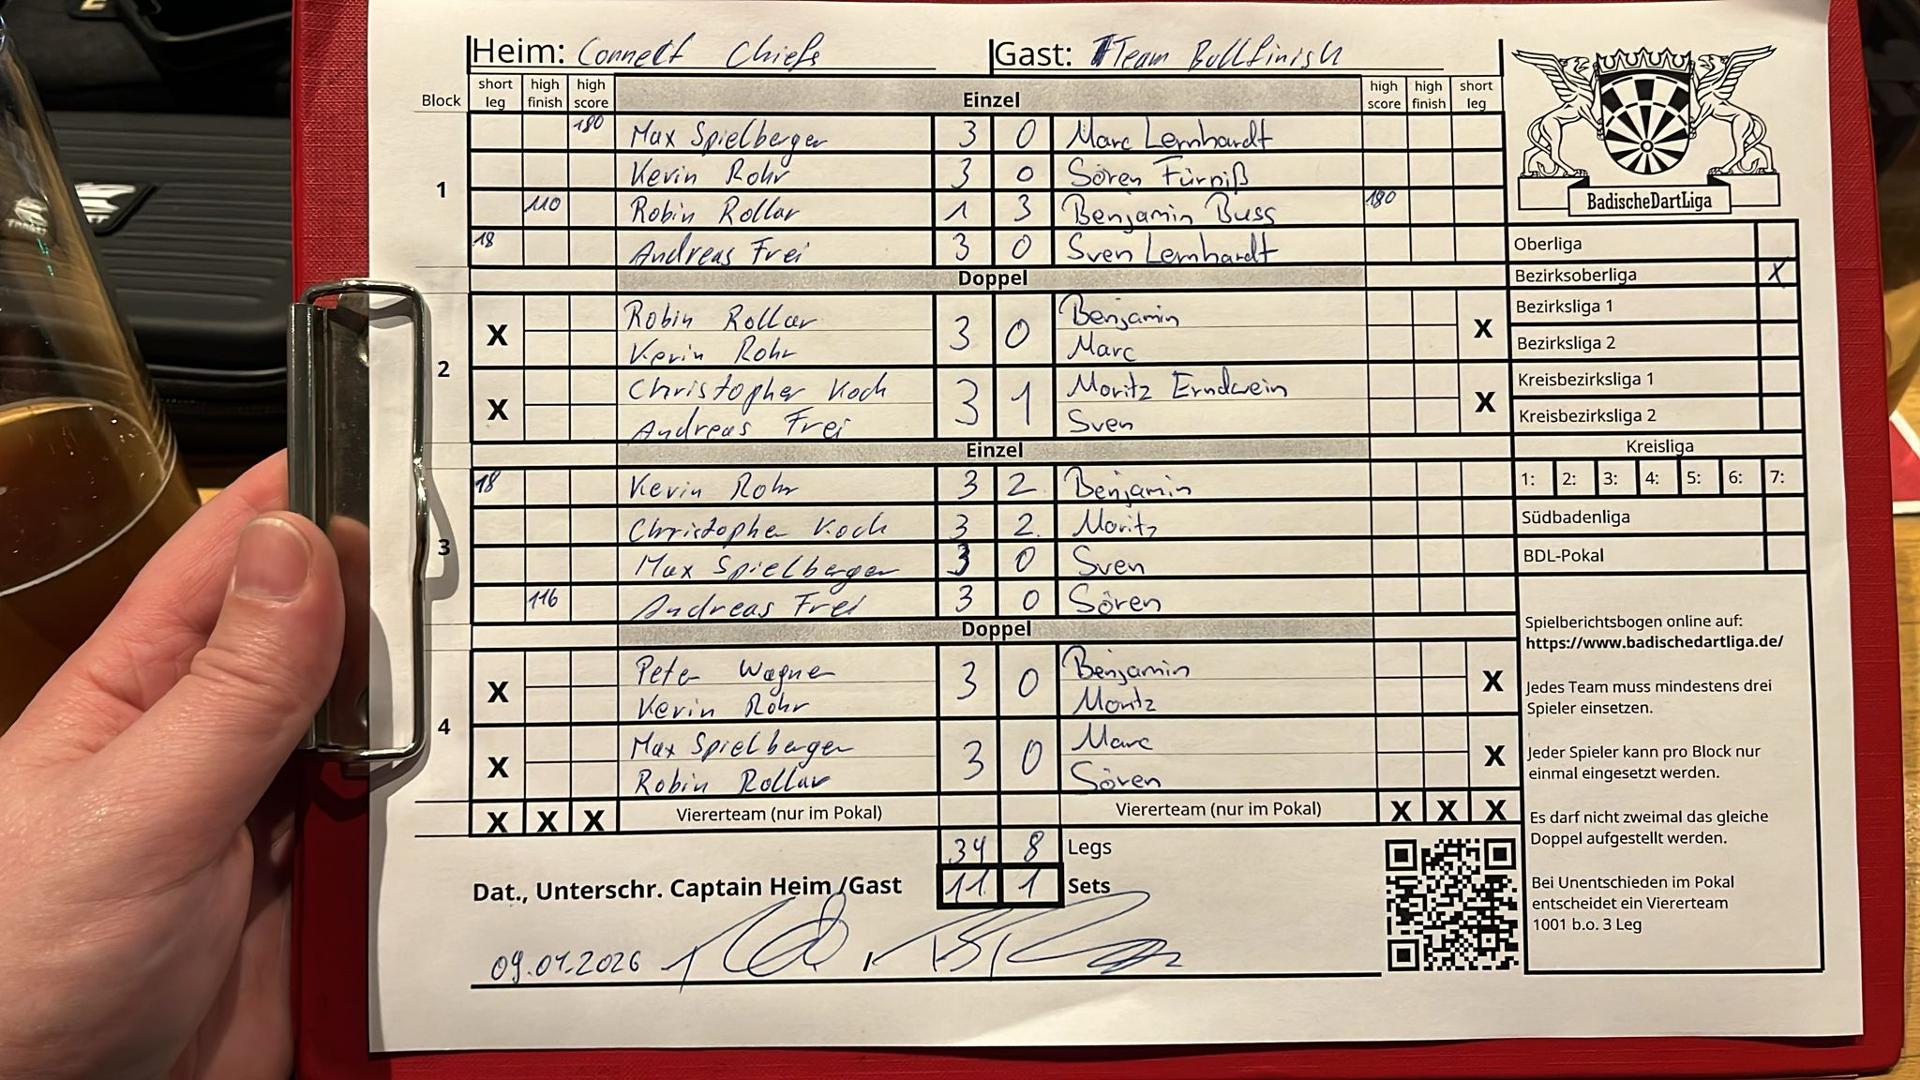 Heim: Connect Chiefs Gast: Team Bullfinish
Block short leg high finish high score Einzel high score high finish short leg
1
180 Max Spielberger 3 0 Marc Lernhardt
Kevin Rohr 3 0 Sören Fürniß
110 Robin Rollar 1 3 Benjamin Buss 180
18 Andreas Frei 3 0 Sven Lernhardt
Doppel
2
X Robin Rollar 3 0 Benjamin X
Kevin Rohr Marc
X Christopher Koch 3 1 Moritz Erndwein X
Andreas Frei Sven
Einzel
3
18 Kevin Rohr 3 2 Benjamin
Christopher Koch 3 2 Moritz
Max Spielberger 3 0 Sven
116 Andreas Frei 3 0 Sören
Doppel
4
X Peter Wagner 3 0 Benjamin X
Kevin Rohr Moritz
X Max Spielberger 3 0 Marc X
Robin Rollar Sören
X X X Viererteam (nur im Pokal) Viererteam (nur im Pokal) X X X
34 8 Legs
Dat., Unterschr. Captain Heim /Gast 11 1 Sets
09.01.2026
BadischeDartLiga
Oberliga
Bezirksoberliga X
Bezirksliga 1
Bezirksliga 2
Kreisbezirksliga 1
Kreisbezirksliga 2
Kreisliga
1: 2: 3: 4: 5: 6: 7:
Südbadenliga
BDL-Pokal
Spielberichtsbogen online auf:
https://www.badischedartliga.de/
Jedes Team muss mindestens drei
Spieler einsetzen.
Jeder Spieler kann pro Block nur
einmal eingesetzt werden.
Es darf nicht zweimal das gleiche
Doppel aufgestellt werden.
Bei Unentschieden im Pokal
entscheidet ein Viererteam
1001 b.o. 3 Leg